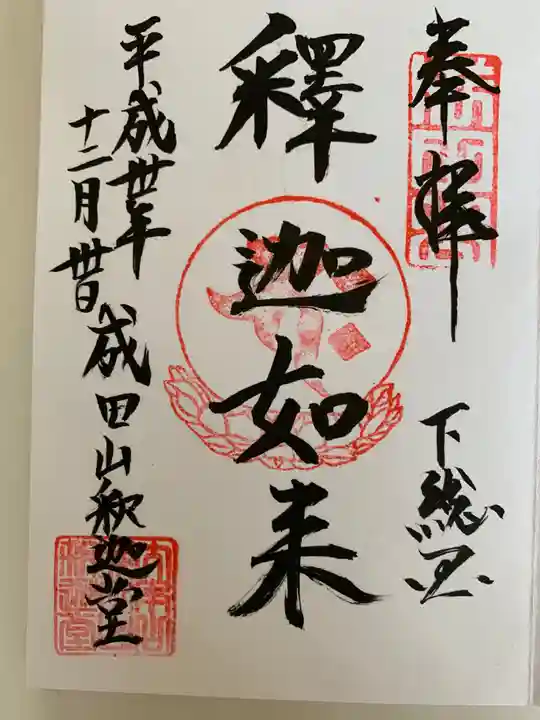 奉拝
下總国
釋迦如来
平成卅年
十二月卅日
成田山釈迦堂